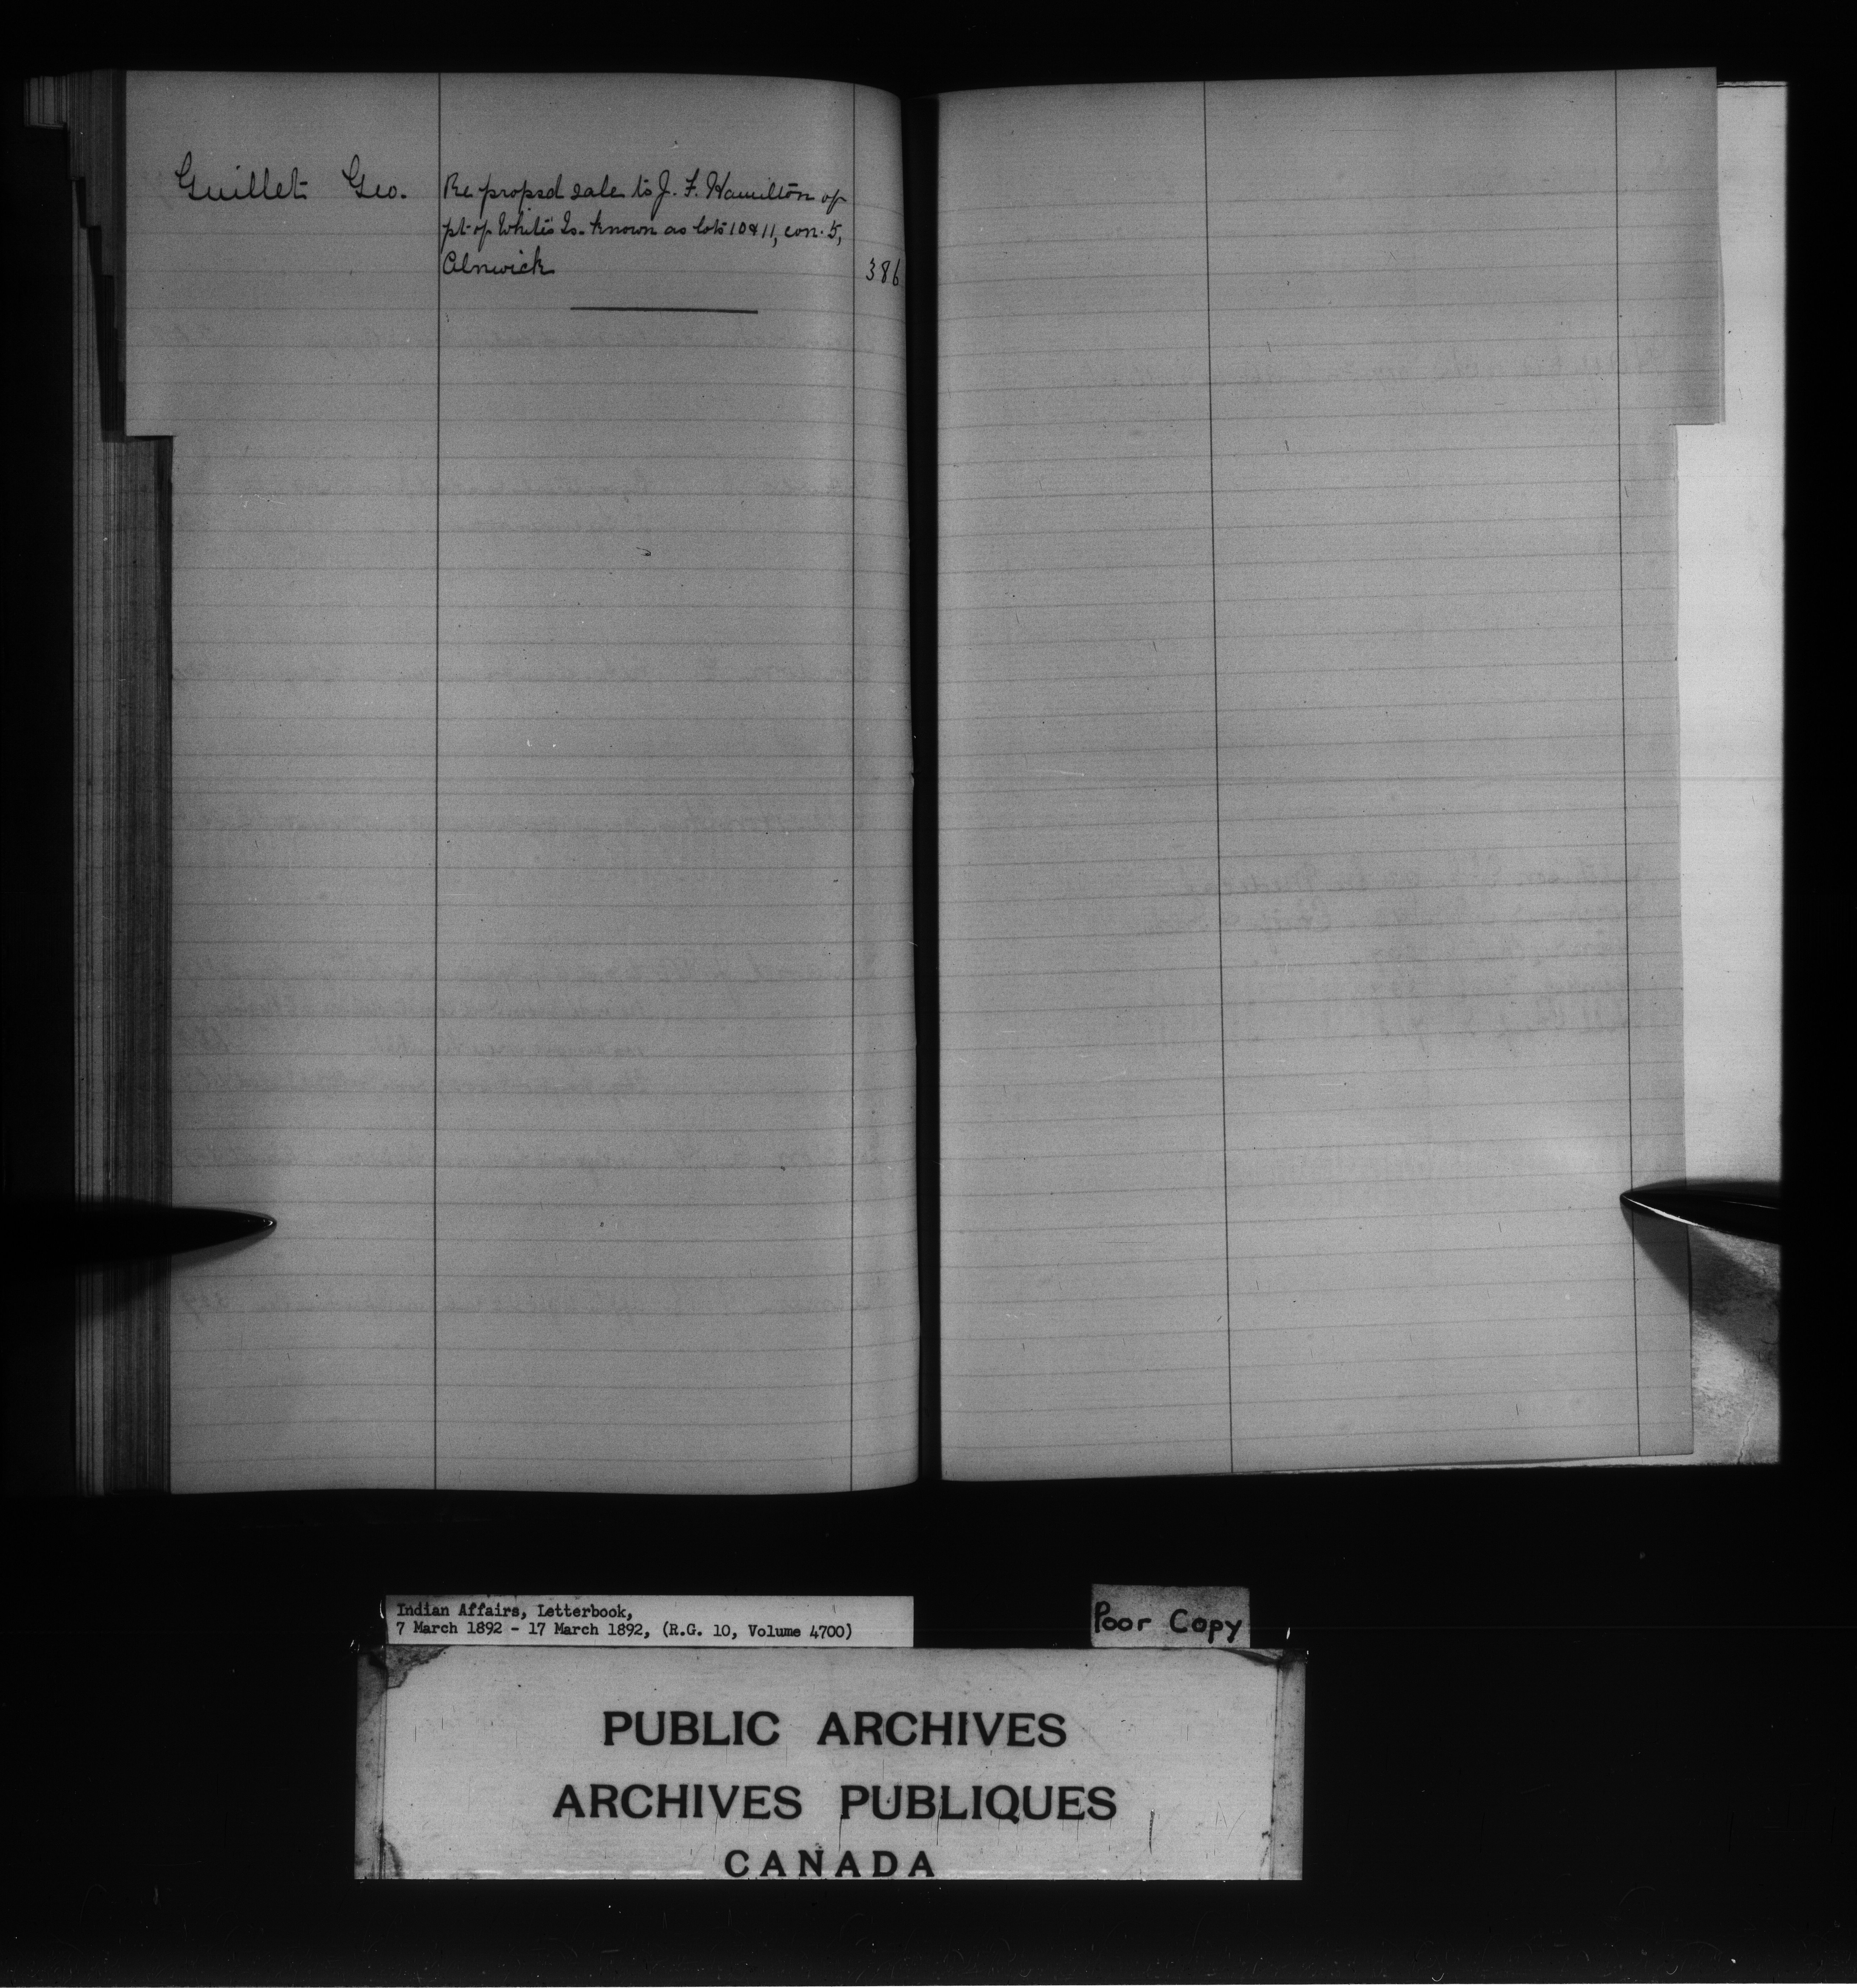 Guillet Geo. Re propsd sale to J. F. Hamilton of
pt of White's Is. known as lots 10 & 11, con. 5,
Alnwick 386
Indian Affairs, Letterbook,
7 March 1892 - 17 March 1892, (R.G. 10, Volume 4700)
Poor Copy
PUBLIC ARCHIVES
ARCHIVES PUBLIQUES
CANADA